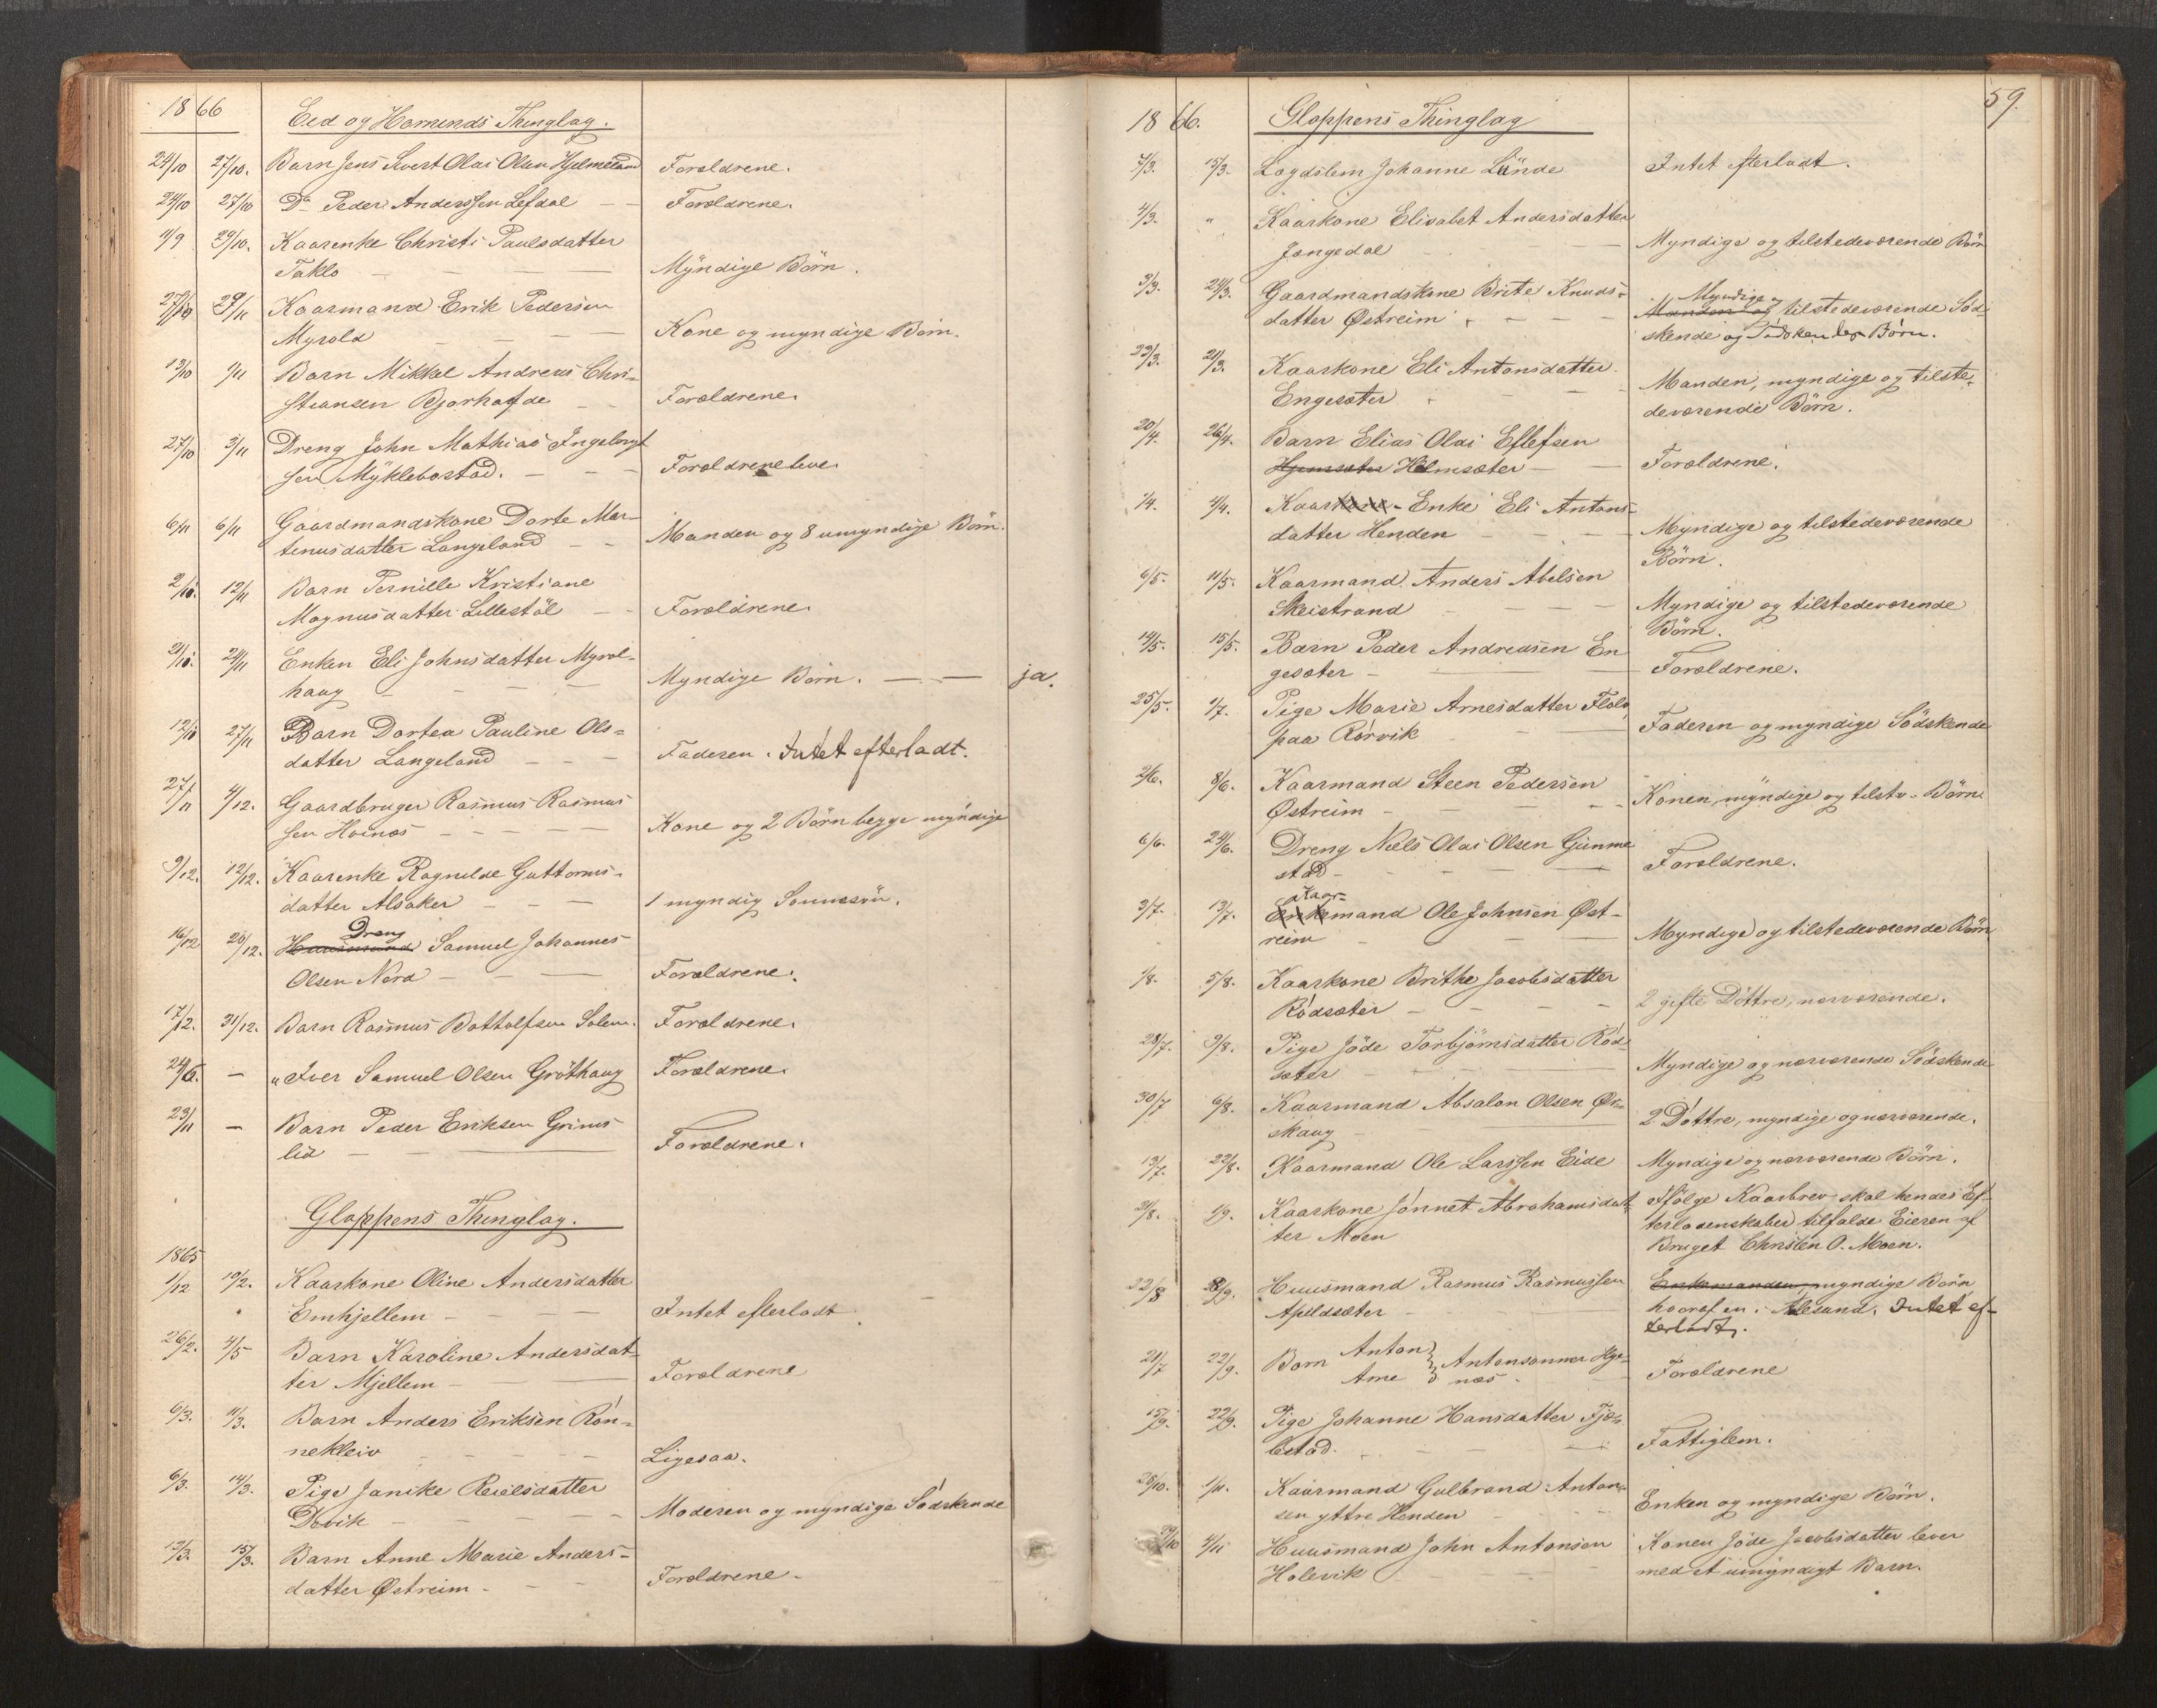 1866 Eed og Hornends Thinglag.
24/10 27/10. Barn Jens Sivert Olai Olsen Hjelmeland Forældrene.
24/10 27/10 Do Peder Anderssen Lefdal — — Forældrene.
11/9 29/10. Kaarenke Christi Paulsdatter
Taklo — — — — Myndige Børn.
29/11 Kaarmand Erik Pedersen
Myrold — — Kone og myndige Børn.
13/10 1/11 Barn Mikkal Andreas Chri-
stiansen Bjørhovde — — Forældrene.
27/10 3/11 Dreng John Mathias Ingebrigt
sen Myklebostad. — — — Forældrene leve.
6/11 6/11 Gaardmandskone Dorte Mar-
tinusdatter Langeland — — Manden og 8 umyndige Børn.
2/10. 12/11 Barn Pernille Kristiane
Magnusdatter Lillestøl — — Forældrene.
21/10. 24/11 Enken Eli Johnsdatter Myrol-
haug — — — — Myndige Børn. — — ja.
12/10 27/11 Barn Dortea Pauline Ols=
datter Langeland — — — Faderen. Intet efterladt.
27/11 4/12. Gaardbruger Rasmus Rasmus
sen Hoinæs — — — — Kone og 2 Børn begge myndige
9/12. 12/12. Kaarenke Ragnilde Guttorms-
datter Alsaker — — — 1 myndig Sønnesøn.
Dreng
16/12 20/12. Huusmand Samuel Johannes
Olsen Nord — — — Forældrene.
17/12. 31/12. Barn Rasmus Bottolfsen Solem. Forældrene.
24/6. — " Iver Samuel Olsen Grøthaug Forældrene.
23/11 — Barn Peder Eriksen Grims
lid — — — Forældrene.
Gloppens Thinglag.
1865
1/12 10/2. Kaarkone Oline Andersdatter
Emhjellem — — — Intet efterladt.
26/2. 4/5 Barn Karoline Andersdat-
ter Mjellem — — — Forældrene
6/3. 11/3. Barn Anders Eriksen Røn-
nekleiv — — — — Ligesaa.
6/3. 14/3. Pige Janike Reielsdatter
Devik — — — — — Moderen og myndige Södskende
13/3. 15/3. Barn Anne Marie Anders-
datter Østreim — — — Forældrene —
59.
1866. Gloppens Thinglag
7/3. 15/3. Lægdslem Johanne Lunde Intet efterladt.
4/3. " Kaarkone Elisabet Andersdatter
Jangedal — Myndige og tilstedeværende Børn
3/3. 24/3. Gaardmandskone Brite Knuds-
datter Østreim — — — Myndige
Manden og tilstedeværende Sød-
skende og Södskendes Børn.
23/3. 21/3. Kaarkone Eli Antonsdatter
Engesæter — — — Manden, myndige og tilste-
deværende Børn.
20/4. 26/4. Barn Elias Olai Ellefsen
Hjemsæter Holmsæter — — Forældrene.
1/4. 4/4. Kaarkone- Enke Eli Antons-
datter Henden — — — Myndige og tilstedeværende
Børn.
6/5. 11/5. Kaarmand Anders Abelsen
Skeistrand — — — Myndige og tilstedeværende
Børn.
14/5. 15/5. Barn Peder Andreasen En
gesæter — — Forældrene.
25/5. 1/7. Pige Marie Arnesdatter Flølo,
paa Rørvik — — Faderen og myndige Södskende
2/6. 8/6. Kaarmand Steen Pedersen
Østreim — — — Konen, myndige og tilstv. Børn
6/6. 24/6. Dreng Niels Olai Olsen Gimme
stad — — — Forældrene.
Kaar-
3/7. 13/7. Enkemand Ole Johnsen Øst-
reim — — — Myndige og tilstedeværende Børn
1/8. 5/8. Kaarkone Brithe Jacobsdatter
Rødsæter — — — 2 gifte Døttre, nærværende.
28/7. 9/8. Pige Jøde Torbjørnsdatter Rød-
sæter — — — Myndige og nærværende Södskende
30/7 6/8. Kaarmand Absalon Olsen Øv-
skaug — — 2 Døttre, myndige og nærværende.
13/7. 22/8. Kaarmand Ole Larssen Eide Myndige og nærværende Børn.
21/8. 1/9. Kaarkone Jønnet Abrahamsdat-
ter Moen Ifølge Kaarbrev skal hendes Ef-
terladenskaber tilfalde Eieren af
Bruget Christen O. Moen.
22/8 8/9. Huusmand Rasmus Rasmussen
Apildsæter — Enkemanden, myndige Børn
hvoraf en i Alesund. Intet ef-
terladt.
21/7 22/9. Børn Anton } Antonsønner Hye-
Arne } næs — Forældrene
15/9. 22/9. Pige Johanne Hansdatter Fjæ-
lestad. — — — Fattiglem.
28/10. 1/11. Kaarmand Gulbrand Anton-
sen yttre Henden — — Enken og myndige Børn.
4/11 Huusmand John Antonsen
Holevik — — — Konen Jøde Jacobsdatter lever
med et umyndigt Barn.